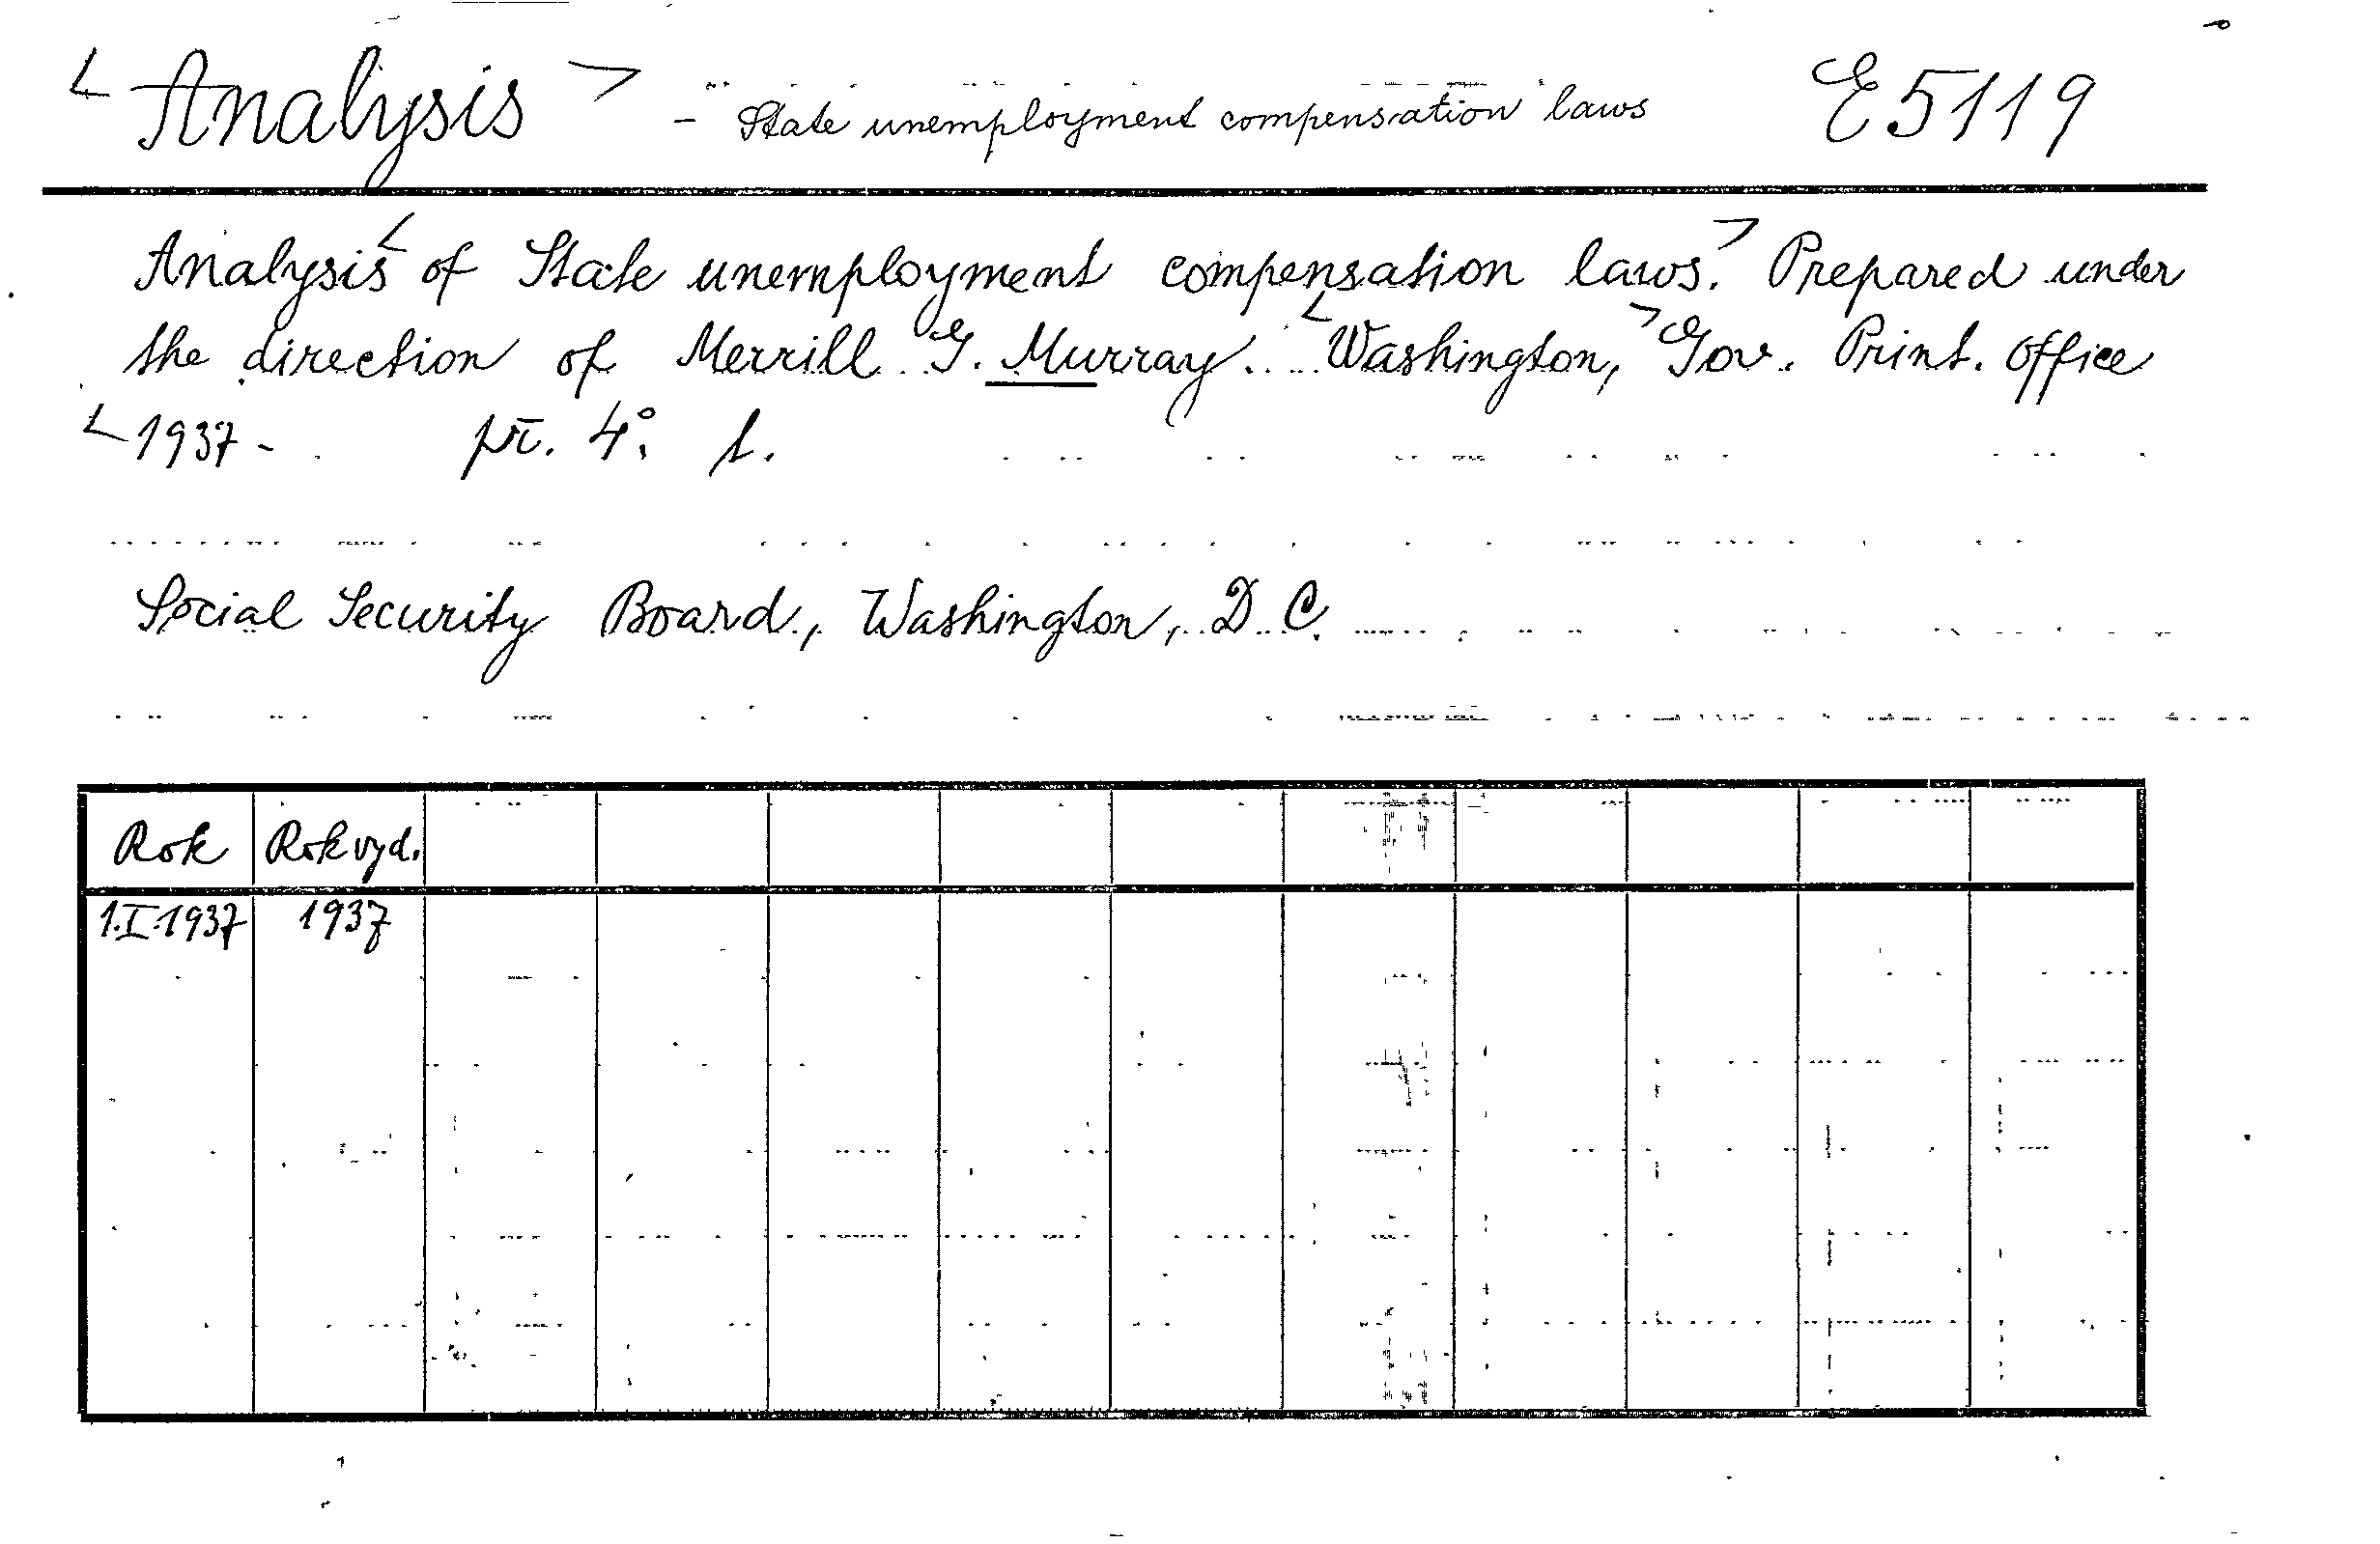 < Analysis > - State unemployment compensation laws E5119
Analysis < of State unemployment compensation laws. > Prepared under
the direction of Merrill G. Murray. < Washington, > Gov. Print. Office
< 1937 - př. 4°. t.
Social Security Board, Washington, D.C.
Rok Rok vyd.
1.I.1937 1937